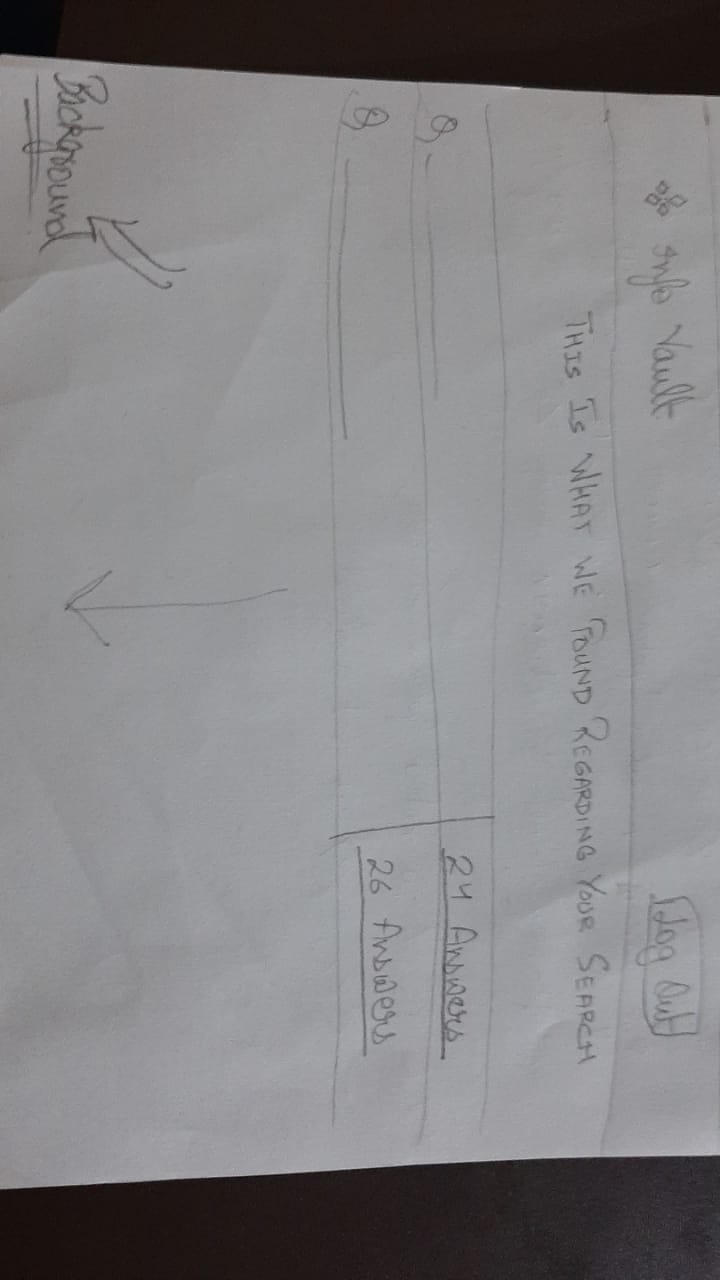 Info Vault
Log Out
THIS IS WHAT WE FOUND REGARDING YOUR SEARCH
Q. 24 Answers
Q 26 Answers
Background